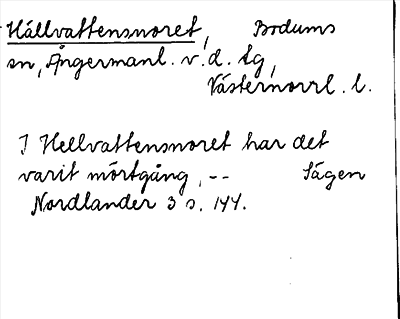 Hällvattensnoret, Bodums
sn, Ångermanl. v. d. tg,
Västernorrl. l.
I Hellvattensnoret har det
varit mörtgång, -- Sägen
Nordlander 3 s. 144.